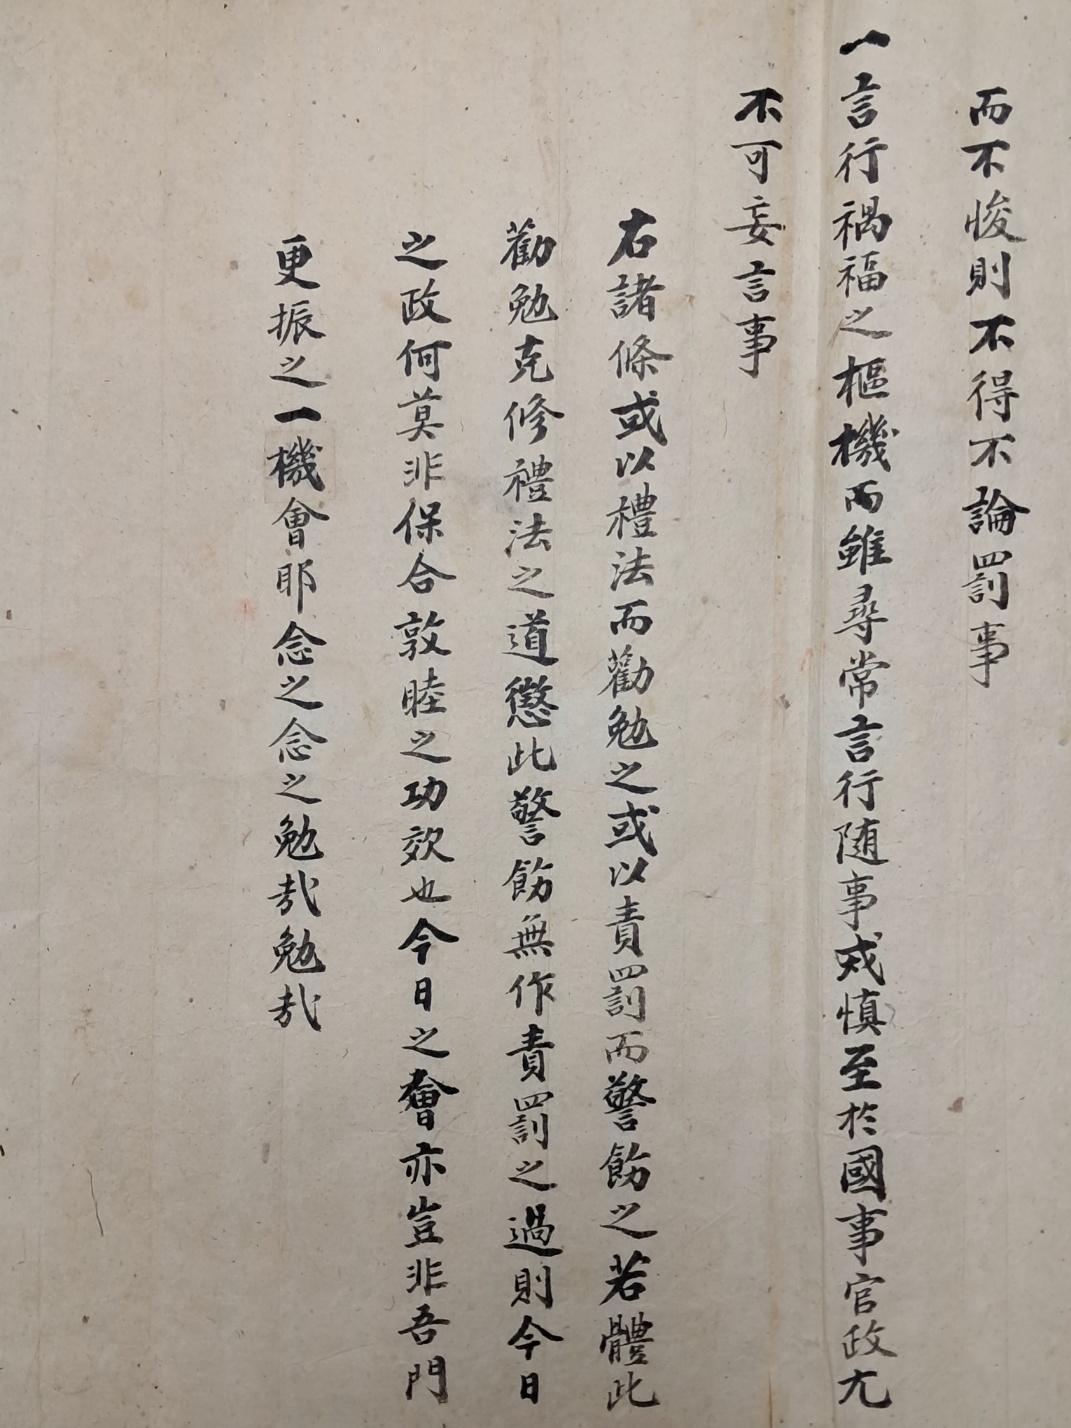 而不悛則不得不論罰事
一言行禍福之樞機而雖尋常言行随事戒慎至於國事官政尢
不可妄言事
右諸條或以禮法而勸勉之或以責罰而警飭之若體此
勸勉克修禮法之道懲此警飭無作責罰之過則今日
之政何莫非保合敦睦之功效也今日之會亦豈非吾門
更振之一機會耶念之念之勉哉勉哉